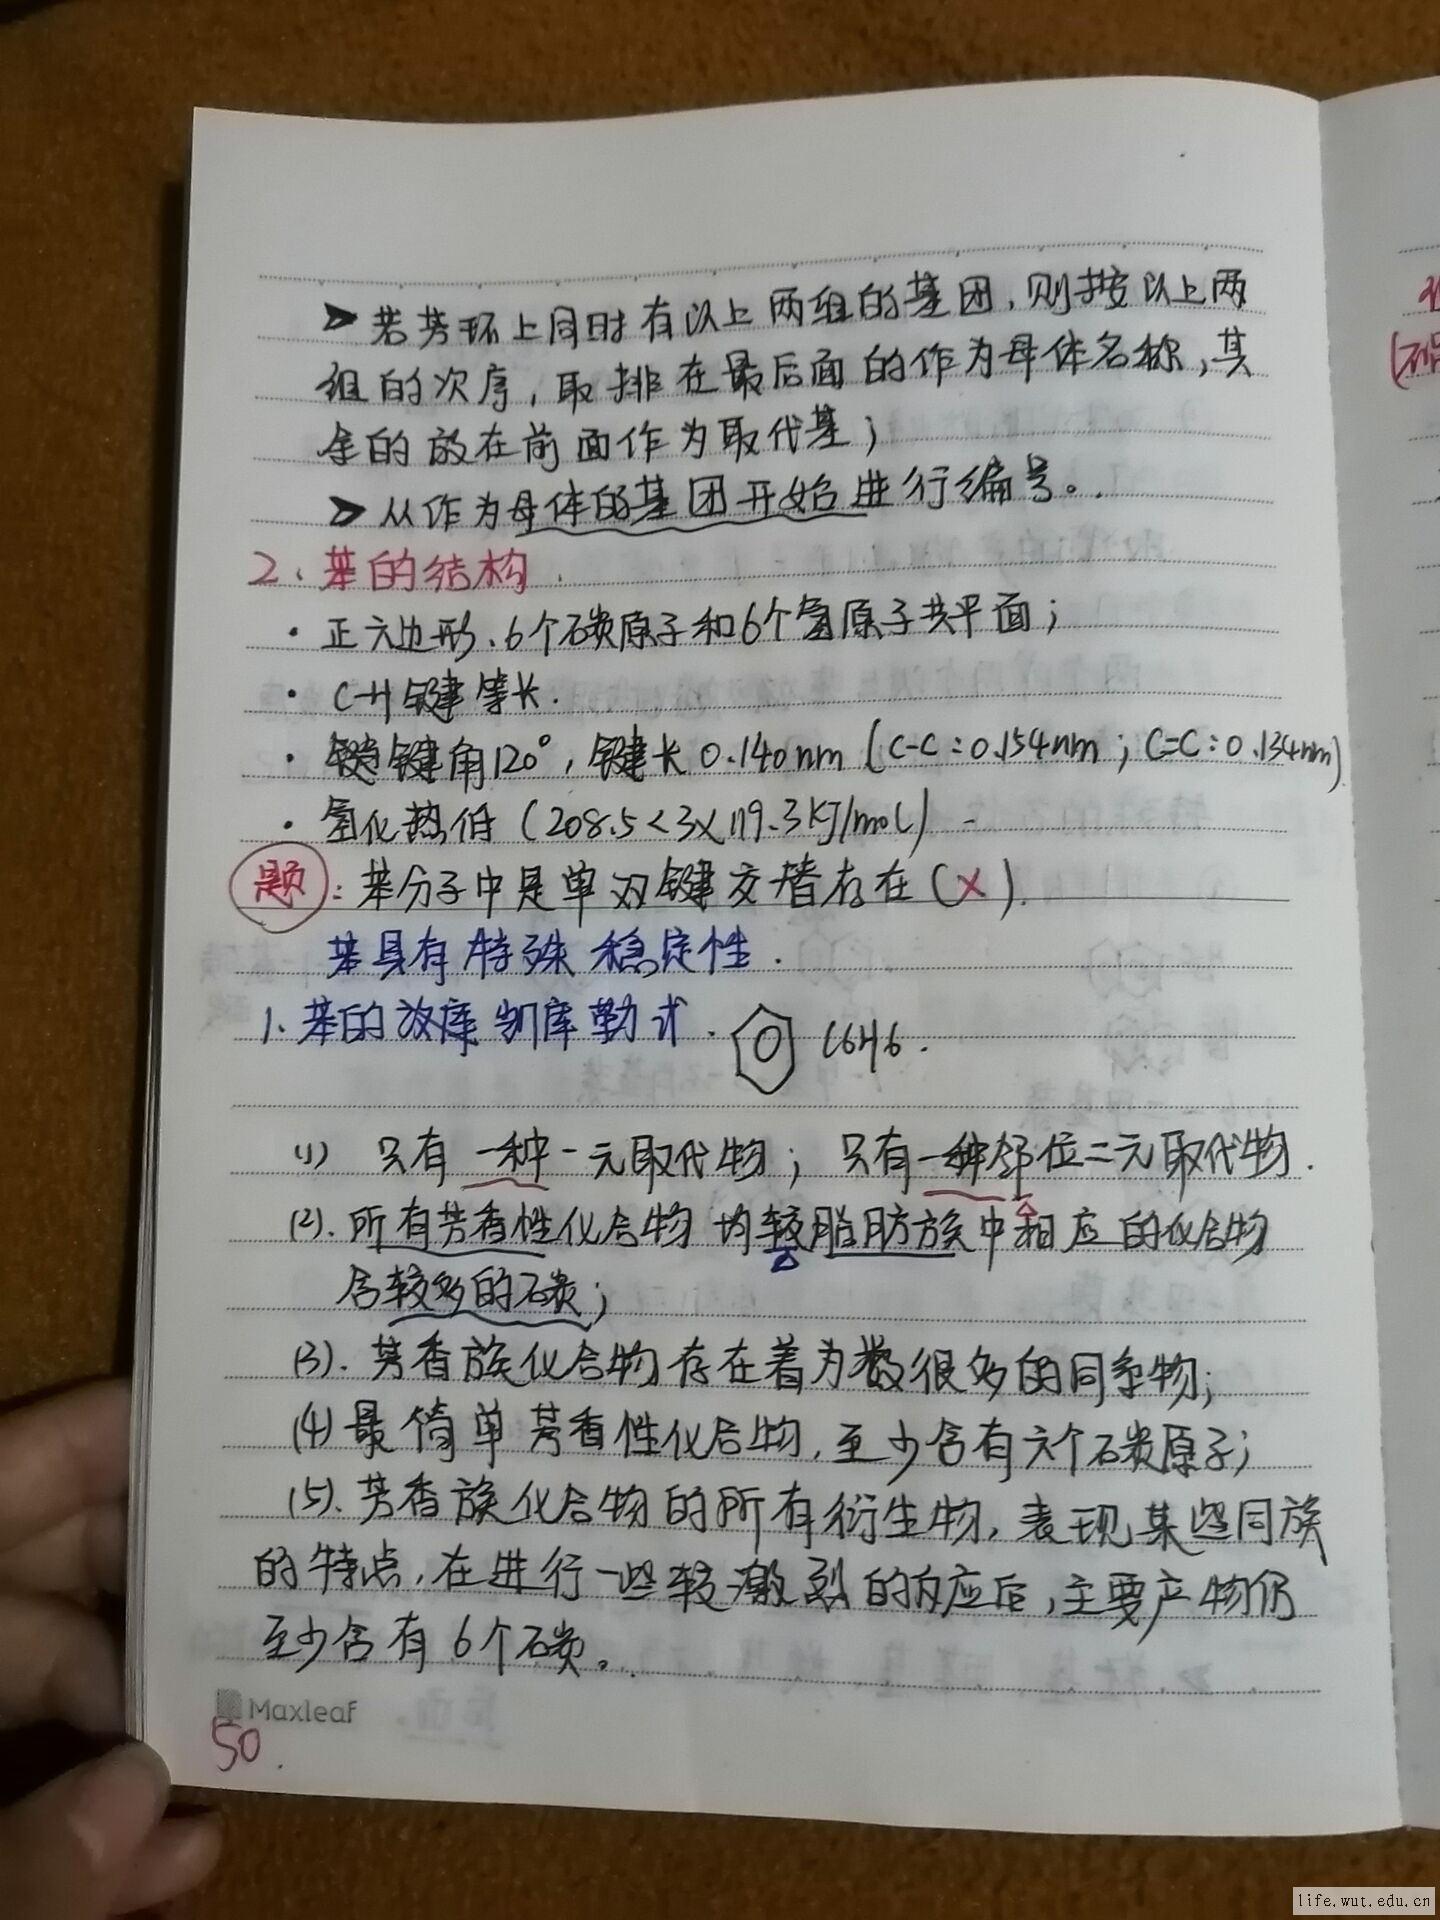 ➤若芳环上同时有以上两组的基团,则按以上两
组的次序,取排在最后面的作为母体名称,其
余的放在前面作为取代基;
➤从作为母体的基团开始进行编号。
2、苯的结构.
·正六边形、6个碳原子和6个氢原子共平面;
·C-H键等长.
·键角120°,键长0.140nm(C-C:0.154nm;C=C:0.134nm)
·氢化热低(208.5<3×119.3KJ/mol)
题:苯分子中是单双键交替存在(×).
苯具有特殊稳定性.
1、苯的凯库勒式. C6H6.
(1) 只有一种一元取代物;只有一种邻位二元取代物.
(2).所有芳香性化合物均较脂肪族中相应的化合物
含较多的碳;
(3).芳香族化合物存在着为数很多的同系物;
(4)最简单芳香性化合物,至少含有六个碳原子;
(5).芳香族化合物的所有衍生物,表现某些同族
的特点,在进行一些较激烈的反应后,主要产物仍
至少含有6个碳。
Maxleaf
50
life.wut.edu.cn